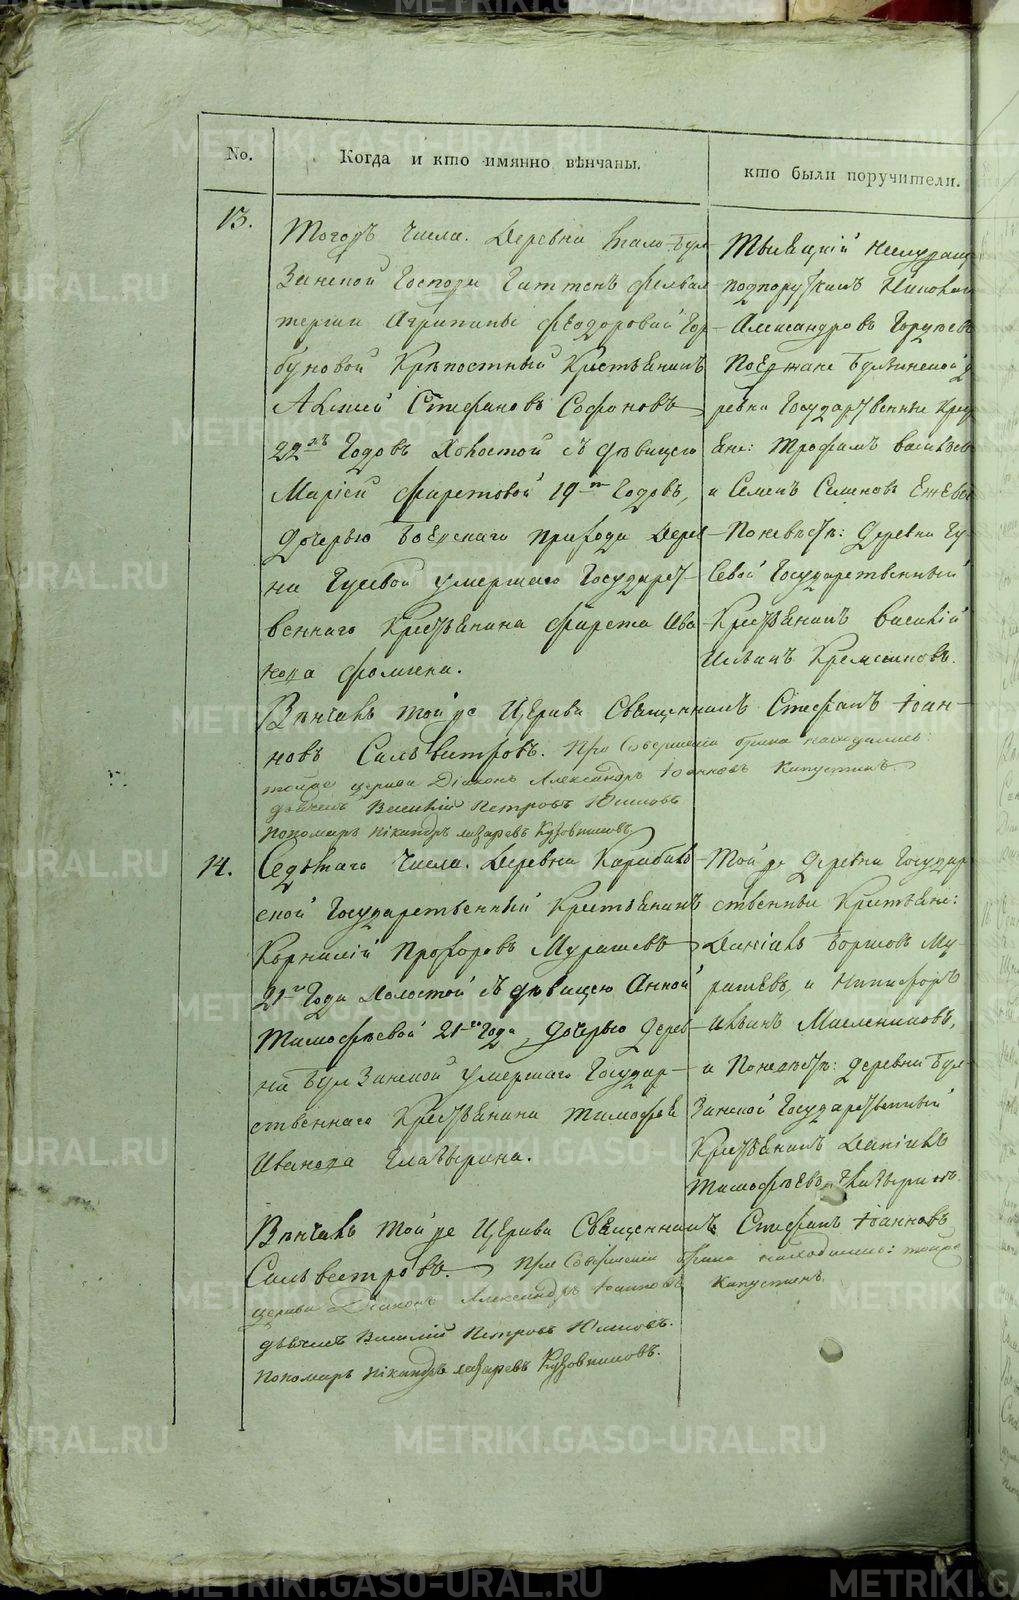 No.
Когда и кто имянно вѣнчаны.
кто были поручители.
13.
Тогожъ Числа. Деревни Мало-Бул
зинской Госпожи Гиттенъ фервал
тершн Агрипины Феодоровны Гор
буновой Крѣпостный Крестьянинъ
Алексей Стефановъ Софоновъ
22хъ Годовъ Холостой съ дѣвицею
Маріей Фирстовой 19ти Годовъ,
дочерью Боевскаго прихода Дерев
ни Гусевой умершаго Государст-
веннаго Крестьянина Фирста Ива
нова Фомина.
Вѣнчалъ той же Церкви Священникъ Стефанъ Іоан-
новъ Сильвестровъ. При Совершеніи брака находились:
тойже церкви Діаконъ Александръ Іоанновъ Капустинъ
дьячекъ Василій Петровъ Юшковъ
Пономарь Никандръ Лазаревъ Кузовниковъ
Тысяцкій
подпорутчикъ
Александровъ
Поезжане Булзинской Д
ревни Государственные Крес
яне: Трофимъ Васильев
и Семенъ Семеновъ
По невѣстѣ: Деревни Гу-
севой Государственный
Крестьянинъ Василій
14.
Седьмаго Числа. Деревни Карабол
ской Государственный Крестьянинъ
Корнилій Прохоровъ Мурашевъ
21го Года Холостой съ дѣвицею Анной
Тимофѣевой 21го Года, дочерью Дерев-
ни Булзинской умершаго Государ-
ственнаго Крестьянина Тимофея
Иванова Глатырина.
Вѣнчалъ той же Церкви Священникъ Стефанъ Іоанновъ
Сильвестровъ. При Совершеніи брака находились: тойже
церкви Діаконъ Александръ Іоанновъ Капустинъ
дьячекъ Василій Петровъ Юшковъ.
Пономарь Никандръ Лазаревъ Кузовниковъ.
Той же Деревни Государ
ственные Крестьяне:
Даніилъ Му-
рашевъ, и Никифоръ
Масленниковъ,
и По невѣстѣ: Деревни Бул-
зинской Государственный
Крестьянинъ Даніилъ
Тимофѣевъ
METRIKI.GASO-URAL.RU